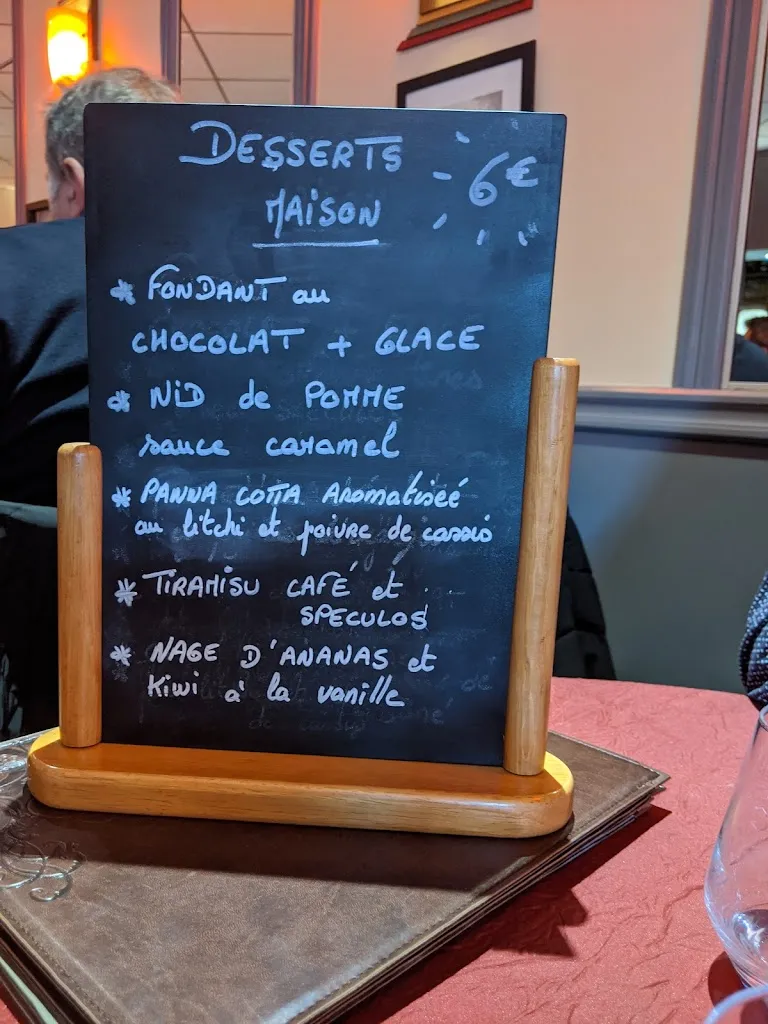 DESSERTS 6€
MAISON
* FONDANT au
CHOCOLAT + GLACE
* NID de POMME
sauce caramel
* PANNA COTTA AROMATISEÉ
au litchi et poivre de cassis
* TIRAMISU CAFÉ et
SPECULOS
* NAGE D'ANANAS et
Kiwi à la vanille